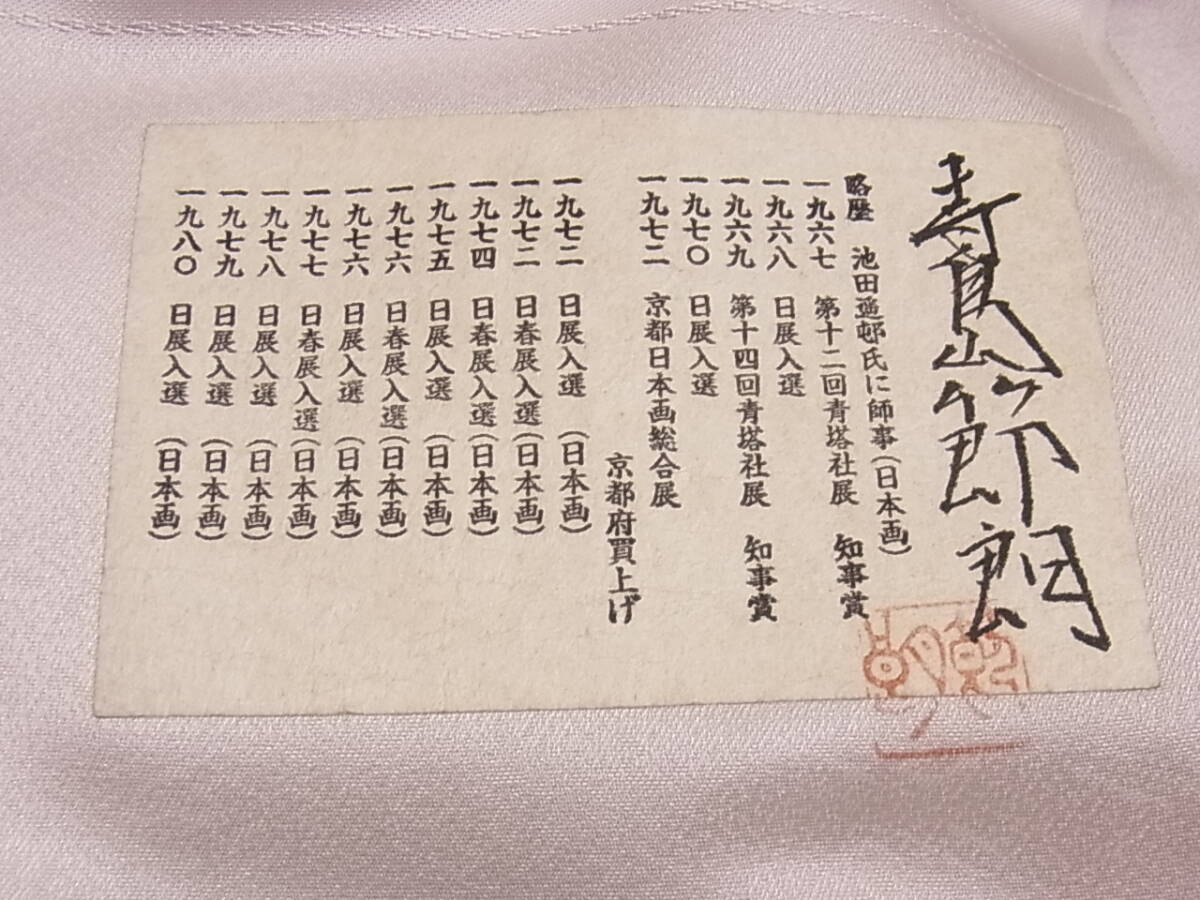 寿貝山節朗
略歴 池田遥邨氏に師事(日本画)
一九六七 第十二回青塔社展 知事賞
一九六八 日展入選
一九六九 第十四回青塔社展 知事賞
一九七〇 日展入選
一九七二 京都日本画総合展
京都府買上げ
一九七二 日展入選 (日本画)
一九七二 日春展入選(日本画)
一九七四 日春展入選(日本画)
一九七五 日展入選 (日本画)
一九七六 日春展入選(日本画)
一九七六 日展入選 (日本画)
一九七七 日春展入選(日本画)
一九七八 日展入選 (日本画)
一九七九 日展入選 (日本画)
一九八〇 日展入選 (日本画)